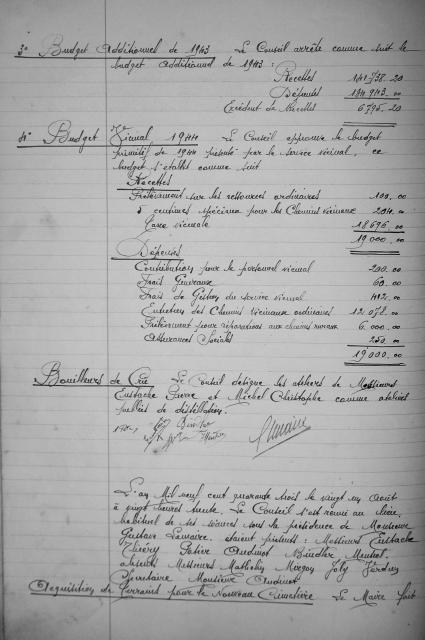 3° Budget Additionnel de 1943 Le Conseil arrête comme suit le
budget additionnel de 1943 :
Recettes 141.738.20
Dépenses 134.943.00
Excédent de Recettes 6795.20
4° Budget Vicinal 1944 Le Conseil approuve le budget
primitif de 1944 présenté par le service vicinal, ce
budget s'établit comme suit
Recettes
Prélèvement sur les ressources ordinaires 100.00
5 centimes spéciaux pour les Chemins Vicinaux 204.00
Taxe vicinale 18696.00
19000.00
Dépenses
Contribution pour le personnel vicinal 200.00
Frais Généraux 60.00
Frais de Gestion du service vicinal 412.00
Entretien des Chemins Vicinaux ordinaires 12.078.00
Prélèvement pour réparations aux chemins ruraux 6.000.00
Assurances Sociales 250.00
19000.00
Bouilleurs de Cru Le Conseil désigne les ateliers de Messieurs
Eustache Pierre et Michel Christophe comme ateliers
publics de distillation.
L'an Mil neuf cent quarante trois le vingt un Août
à vingt heures trente. Le Conseil s'est réuni au lieu
habituel de ses séances sous la présidence de Monsieur
Gustave Lemaire. étaient présents : Messieurs Eustache
Thiéry Oudinot Bindler
absents Messieurs Mathelin Joly
Secrétaire Monsieur Oudinot
Acquisition de Terrains pour le Nouveau Cimetière Le Maire fait